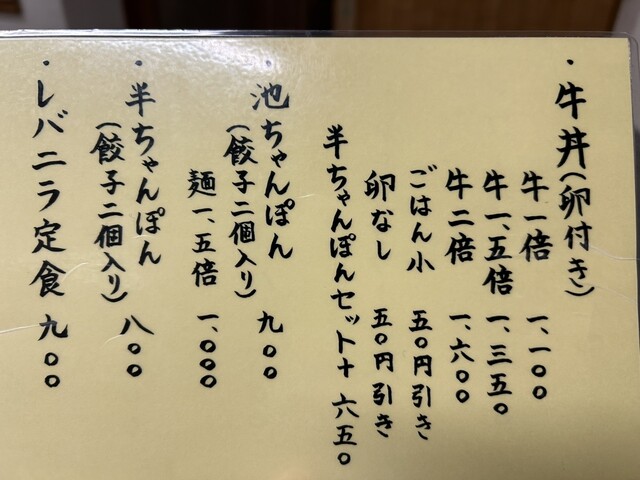 ・牛丼(卵付き)
牛一倍 一、一〇〇
牛一、五倍 一、三五〇
牛二倍 一、六〇〇
ごはん小 五〇円引き
卵なし 五〇円引き
半ちゃんぽんセット+六五〇
・池ちゃんぽん 九〇〇
(餃子二個入り)
麺一、五倍 一、〇〇〇
・半ちゃんぽん 八〇〇
(餃子二個入り)
・レバニラ定食 九〇〇